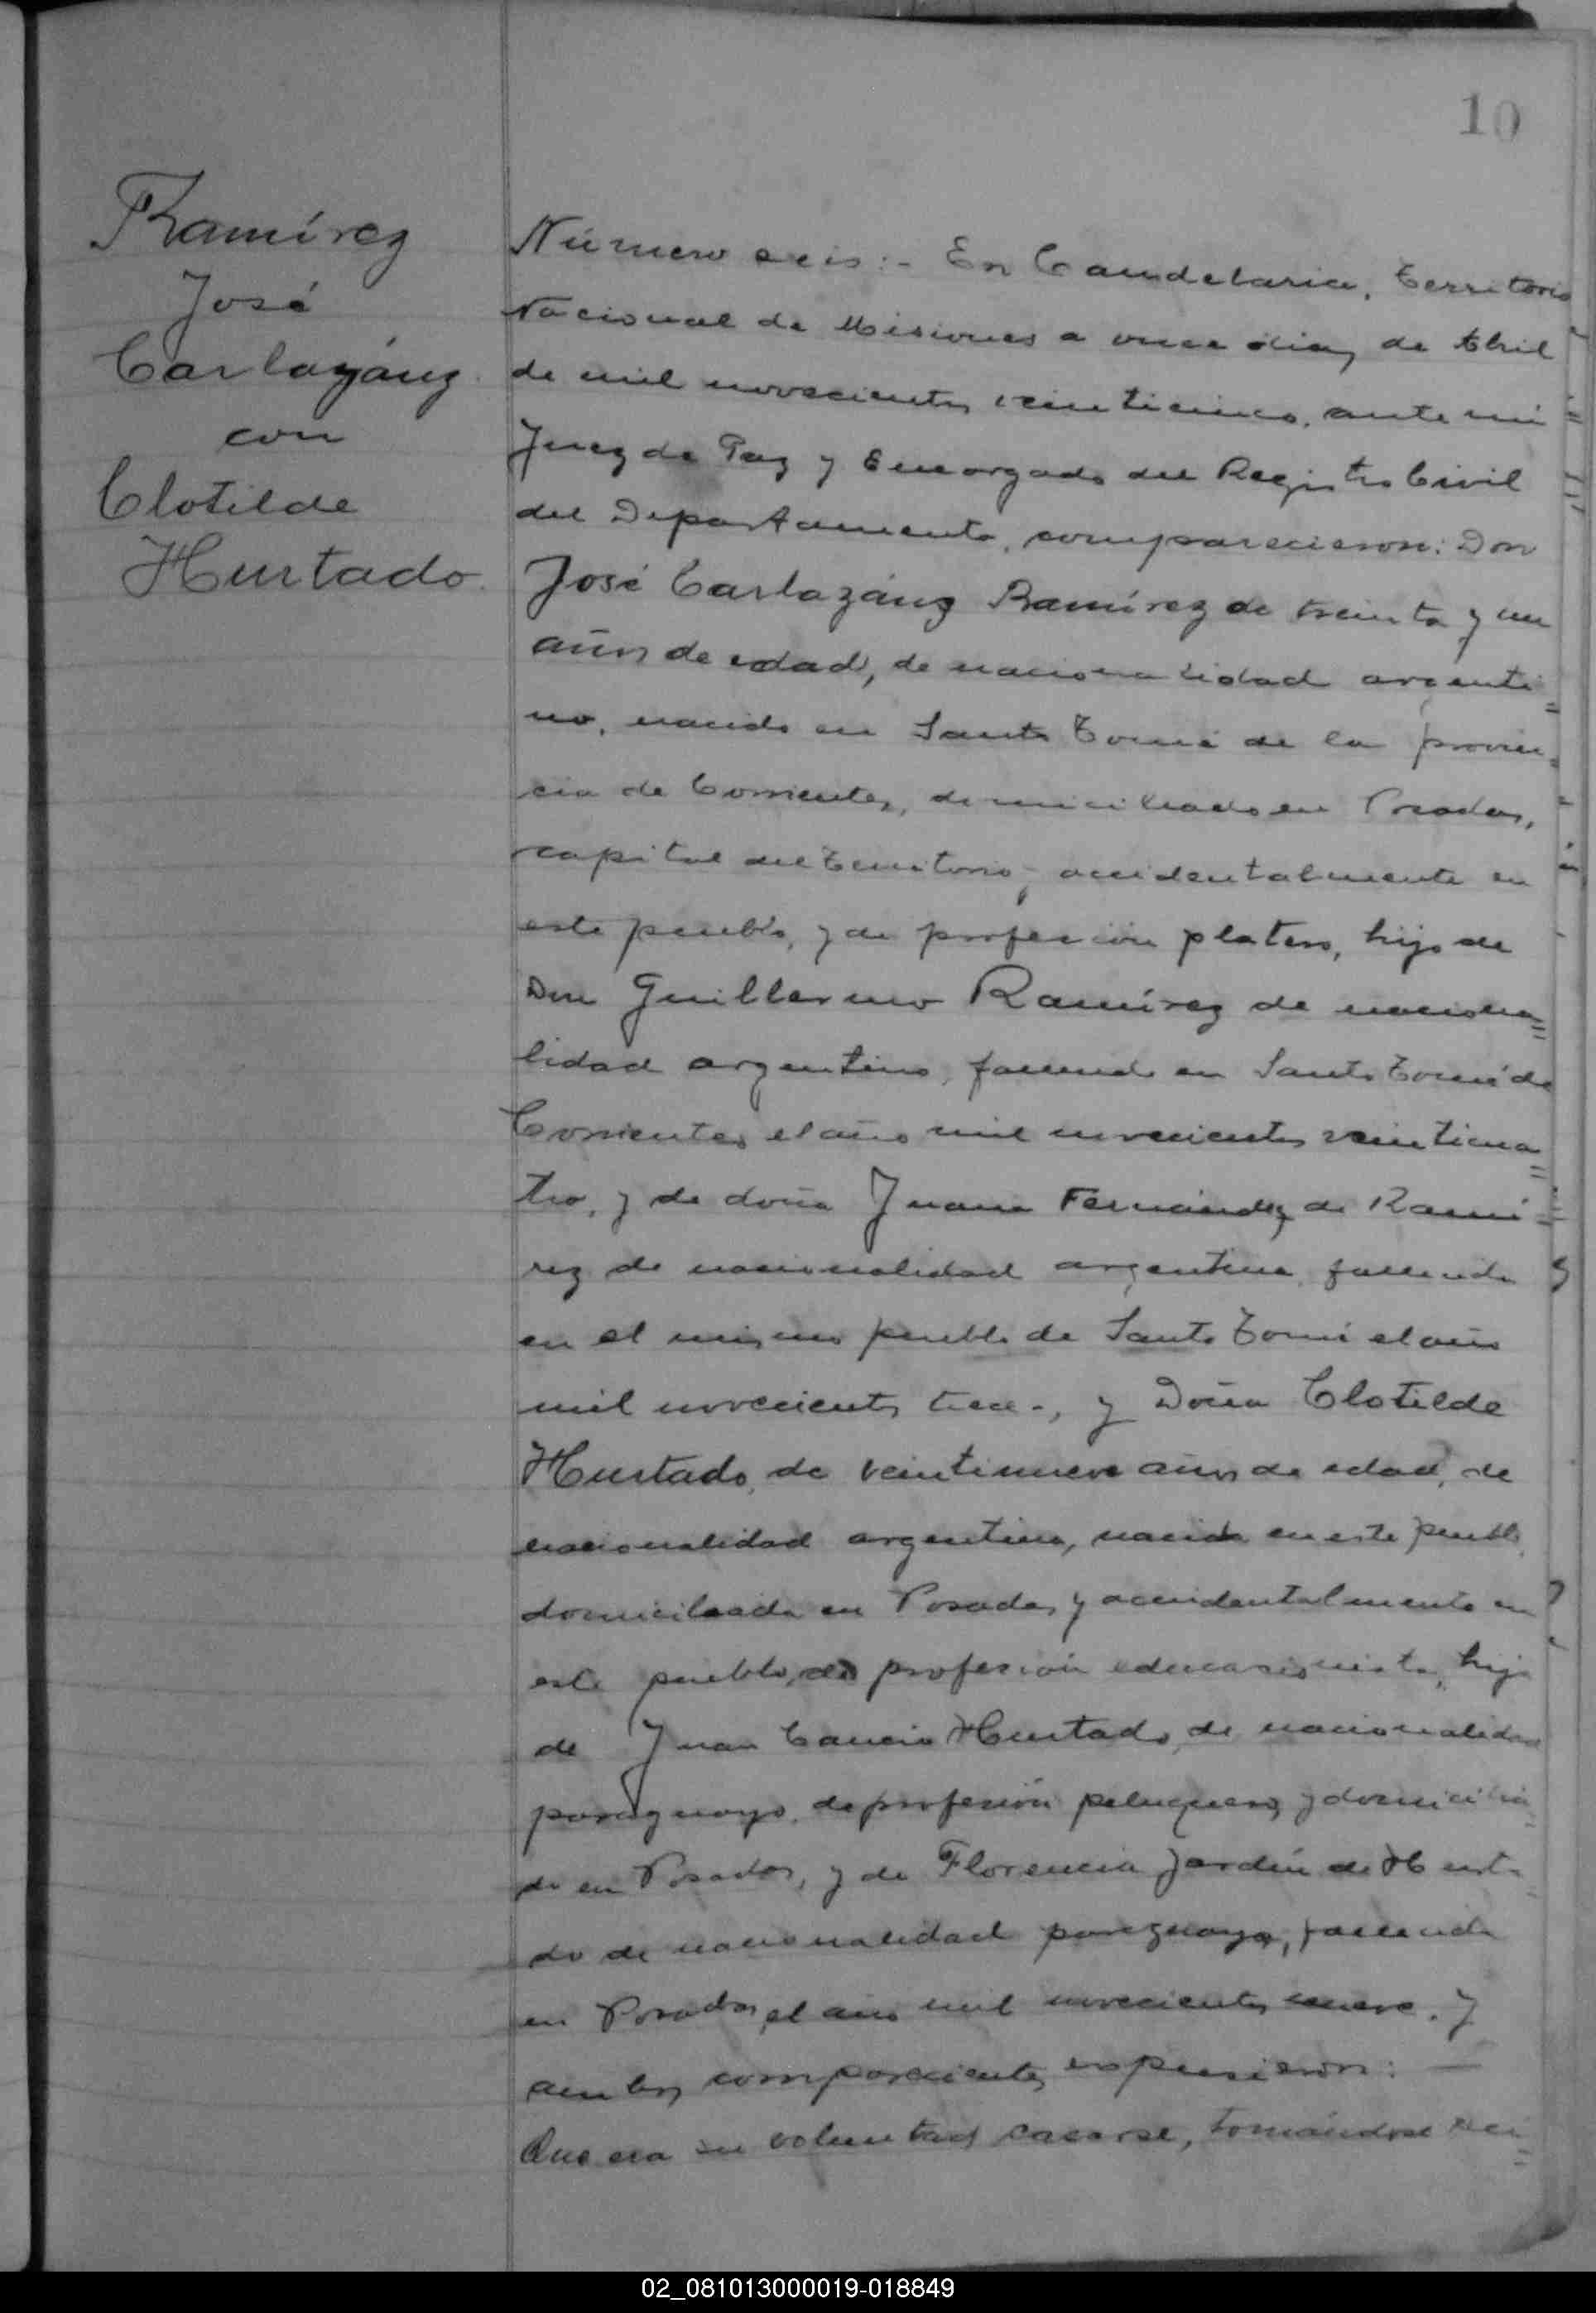 10
Ramírez
José
Carlazánz
con
Clotilde
Hurtado
Número seis:- En Candelaria, Territorio
Nacional de Misiones a once días de Abril
de mil novecientos veinticinco, ante mi
Juez de Paz y Encargado del Registro Civil
del Departamento, comparecieron: Don
José Carlazánz Ramírez de treinta y un
años de edad, de nacionalidad argenti=
no, nacido en Santo Tomé de la provin=
cia de Corrientes, domiciliado en Posadas,
capital del Territorio, accidentalmente en
este pueblo, y de profesión platero, hijo de
Don Guillermo Ramírez de naciona=
lidad argentino, fallecido en Santo Tomé de
Corrientes el año mil novecientos veinticua=
tro, y de doña Juana Fernández de Ramí=
rez de nacionalidad argentina, fallecida
en el mismo pueblo de Santo Tomé el año
mil novecientos trece-, y Doña Clotilde
Hurtado, de veintinueve años de edad, de
nacionalidad argentina, nacida en este pueblo,
domiciliada en Posadas y accidentalmente en
este pueblo, de profesión educasionista, hija
de Juan Cancio Hurtado, de nacionalidad
paraguayo, de profesión peluquero, y domicilia=
do en Posadas, y de Florencia Jardín de Hurta=
do de nacionalidad paraguaya, fallecida
en Posadas, el año mil novecientos nueve. Y
ambos comparecientes expusieron:
Que era su voluntad casarse, tomándose reci=
02_081013000019-018849